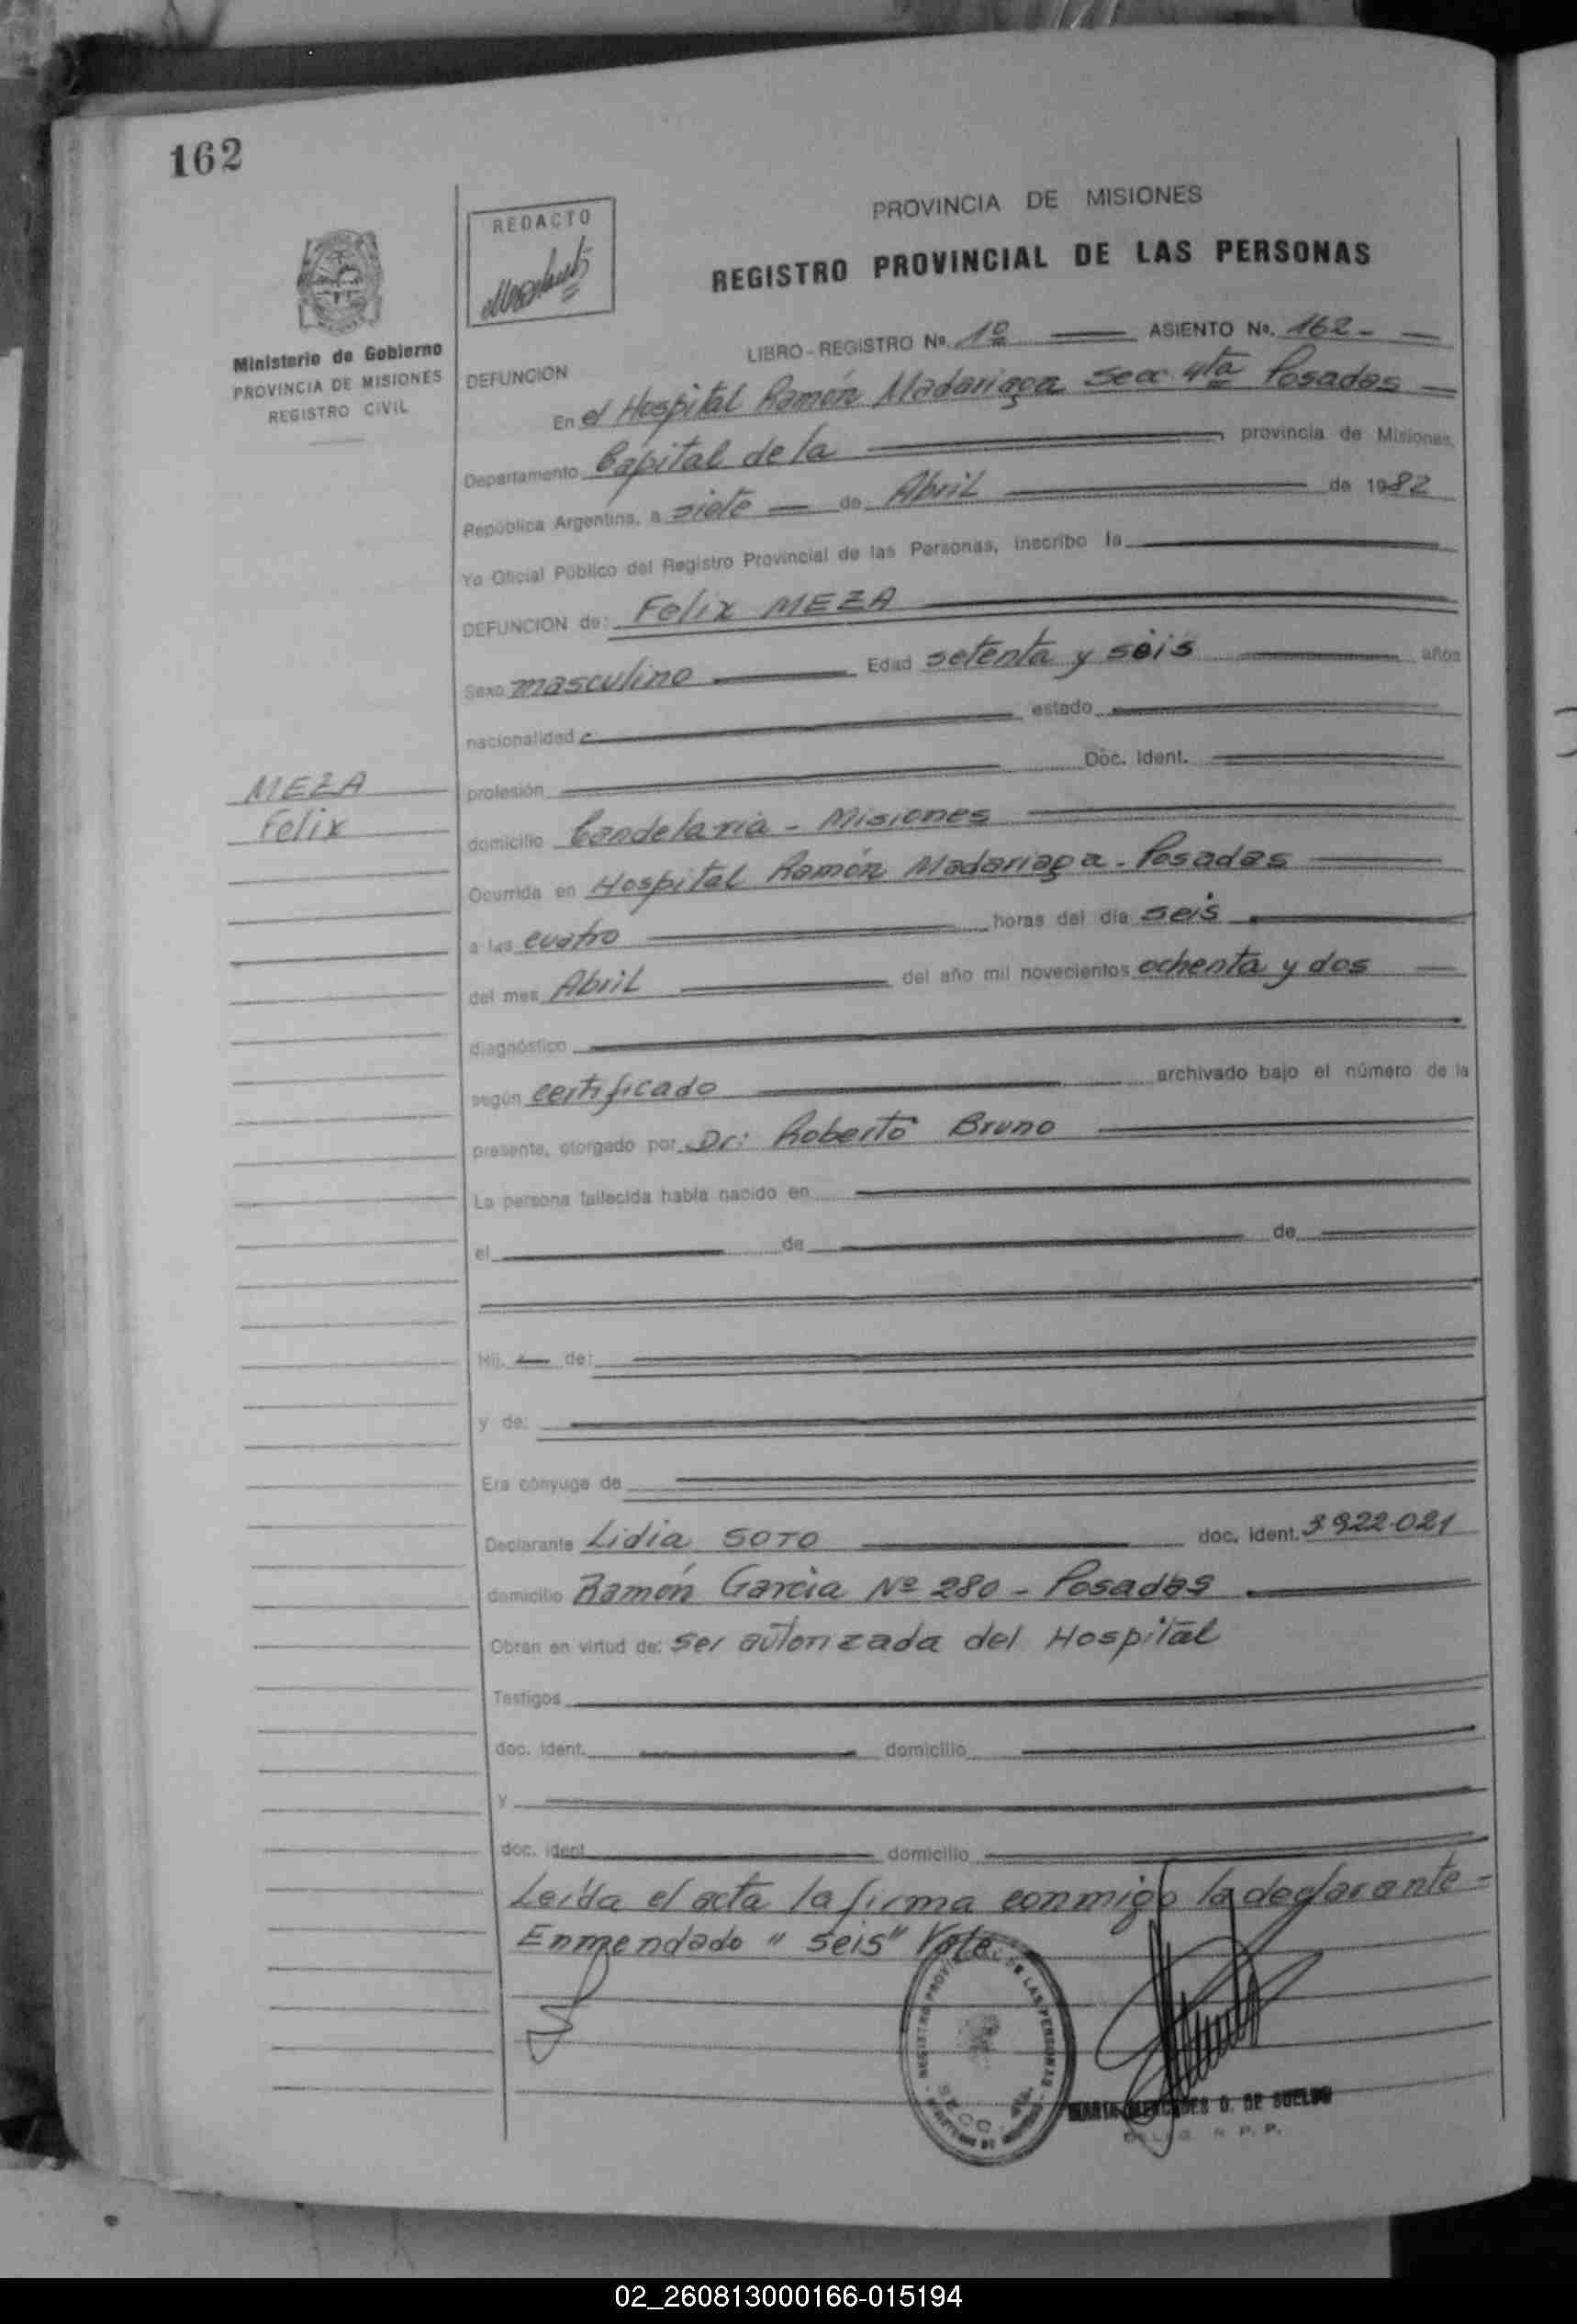 162
Ministerio de Gobierno
PROVINCIA DE MISIONES
REGISTRO CIVIL
REDACTO
PROVINCIA DE MISIONES
REGISTRO PROVINCIAL DE LAS PERSONAS
LIBRO - REGISTRO Nº. 1º ASIENTO Nº. 162-
DEFUNCION
En el Hospital Ramón Madariaga Secc. 4ta Posadas
Departamento Capital de la provincia de Misiones,
República Argentina, a siete de Abril de 1982
Yo Oficial Público del Registro Provincial de las Personas, inscribo la
DEFUNCION de: Felix MEZA
Sexo masculino Edad setenta y seis años
nacionalidad estado
profesión Doc. Ident.
MEZA
Felix
domicilio Candelaria - Misiones
Ocurrida en Hospital Ramón Madariaga - Posadas
a las cuatro horas del día seis
del mes Abril del año mil novecientos ochenta y dos
diagnóstico
según certificado archivado bajo el número de la
presente, otorgado por Dr: Roberto Bruno
La persona fallecida había nacido en
el de de
Hij. de:
y de:
Era cónyuge de
Declarante Lidia SOTO doc. ident. 3.922.021
domicilio Ramón Garcia Nº 280 - Posadas
Obran en virtud de: ser autorizada del Hospital
Testigos
doc. ident. domicilio
y
doc. ident domicilio
Leída el acta la firma conmigo la declarante -
Enmendado "seis" Vale.
REGISTRO PROVINCIAL DE LAS PERSONAS
SECC. 4ta.
MARIA MERCEDES G. DE SUELDO
DELEG. R. P. P.
02_260813000166-015194